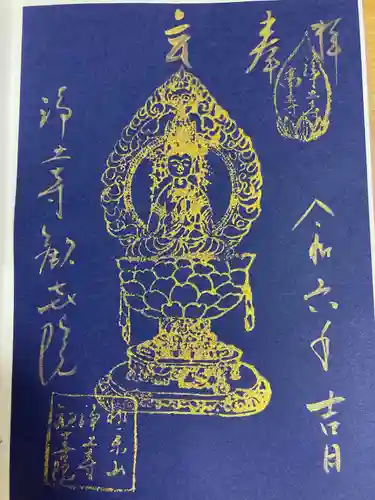 奉拝
令和六年吉日
浄土寺歓喜院
極楽山
浄土寺
歓喜院